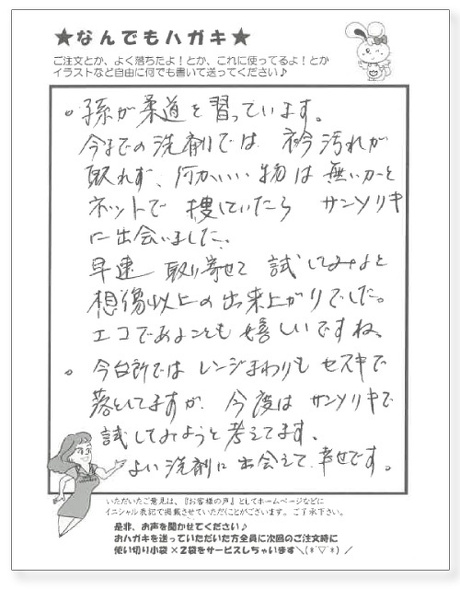 ★なんでもハガキ★
ご注文とか、よく落ちたよ！とか、これに使ってるよ！とか
イラストなど自由に何でも書いて送ってください♪
。孫が柔道を習っています。
今までの洗剤では 衿汚れが
取れず、何かいい物は無いかと
ネットで 捜していたら サンソリキ
に出会いました。
早速 取り寄せて 試してみると
想像以上の出来上がりでした。
エコであることも 嬉しいですね。
。今台所では レンジまわりも セスキで
落としてますが、今度は サンソリキで
試してみようと 考えてます。
よい洗剤に 出会えて 幸せです。
いただいたご意見は、『お客様の声』としてホームページなどに
イニシャル表記で掲載させていただくことがございます。ご了承下さい。
是非、お声を聞かせてください♪
おハガキを送っていただいた方全員に次回のご注文時に
使い切り小袋×2袋をサービスしちゃいます＼(*´▽`*)／